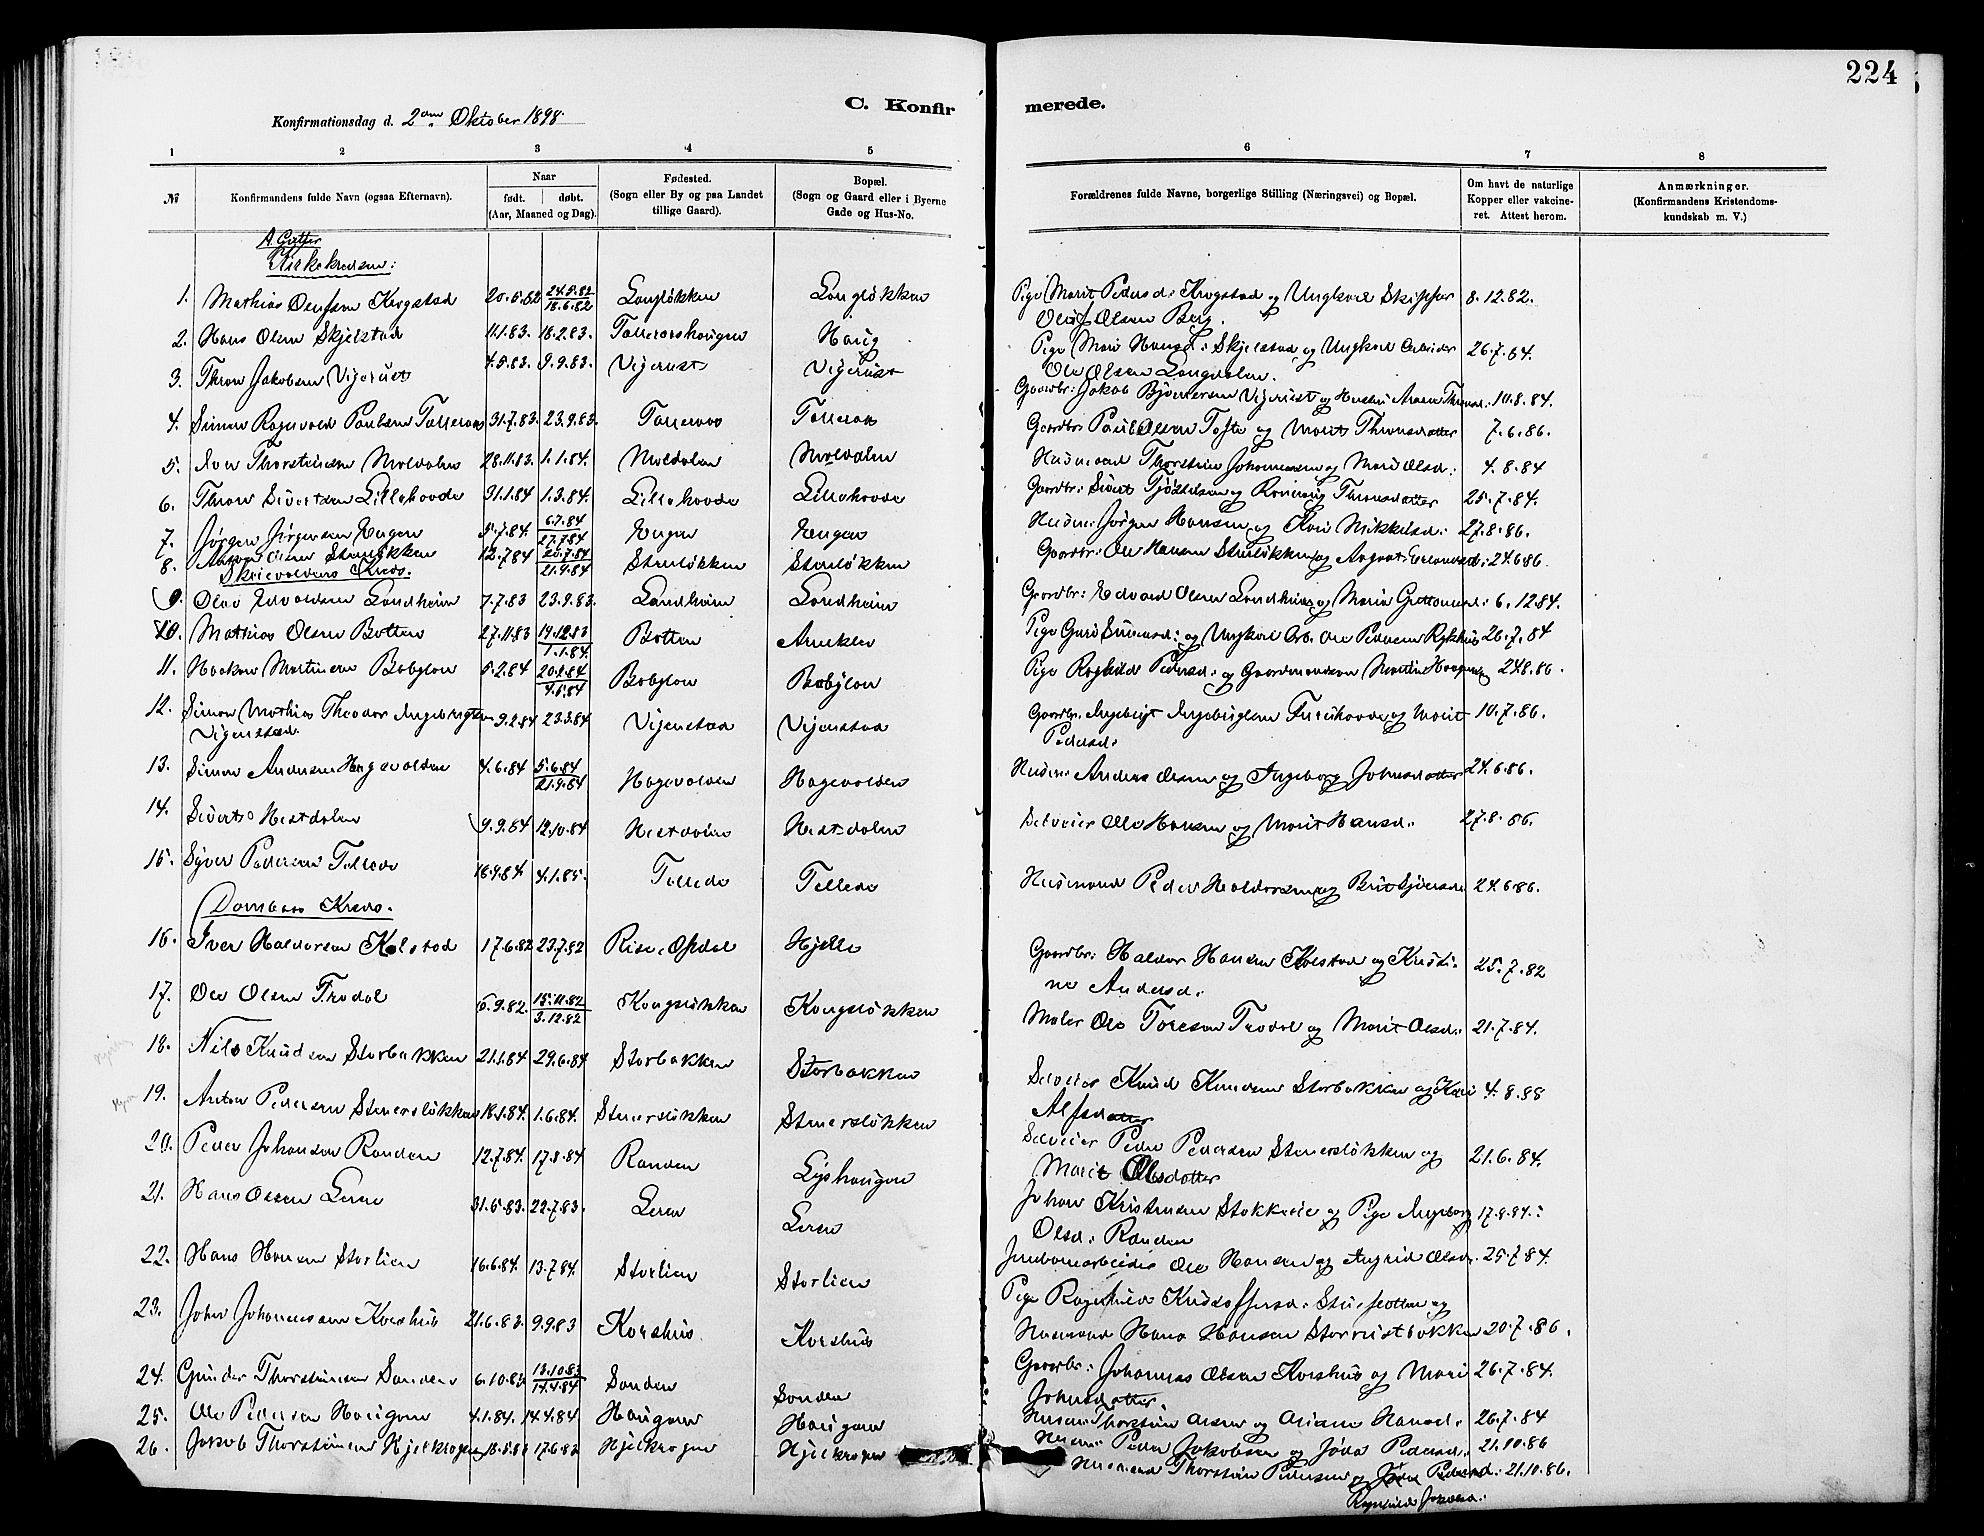 224
C. Konfir
merede.
Konfirmationsdag d. 2den Oktober 1898.
1 2 3 4 5 6 7 8
№
Konfirmandens fulde Navn (ogsaa Efternavn).
Naar
født. døbt.
(Aar, Maaned og Dag).
Fødested.
(Sogn eller By og paa Landet
tillige Gaard).
Bopæl.
(Sogn og Gaard eller i Byerne
Gade og Hus-No.
Forældrenes fulde Navne, borgerlige Stilling (Næringsvei) og Bopæl.
Om havt de naturlige
Kopper eller vakcine-
ret. Attest herom.
Anmærkninger.
(Konfirmandens Kristendoms-
kundskab m. V.)
A Gutter
Kirkekredsen:
1. Mathias Krogstad 20.5.82 24.5.82 18.6.82 Langløkken Langløkken Pige Marit Pedersd: Krogstad og Ungkarl Skipper 8.12.82.
Oluf Olsen Berg.
2. Hans Olsen Skjelstad 11.1.83. 18.2.83. Haug Pige Mari Hansd: Skjelstad og Ungkarl Arbeider 26.7.84
Ole Olsen Langdalen.
3. Thron Jakobsen Vigerust 4.5.83. 9.9.83. Vigerust Vigerust Gaardbr: Jakob Vigerust og 10.8.84.
4. Simen Ragnvald Paulsen Tofteraas 31.7.83. 23.9.83. Gaardbr: Paul Olsen Tofte og Marit Thronsdatter 7.6.86.
5. Iver Thorsteinsen Moldalen 28.11.83. 1.1.84. Moldalen Moldalen Husmand Thorstein Johannesen og Mari Olsd: 4.8.84
6. Thron Sivertsen Lillehovde 31.1.84 1.3.84. Lillehovde Lillehovde Gaardbr: Sivert og Rønnaug Thronsdatter 25.7.84.
7. Jørgen Jørgensen Engen 5.7.84. 6.7.84 27.7.84 Engen Engen Husm: Jørgen Hansen og Kari Mikkelsd: 27.8.86.
8. Olsen Stenløkken 12.7.84 20.7.84 21.9.84 Stenløkken Stenløkken Gaardbr: Ole Hansen Stenløkken og 24.6.86.
Kreds.
9. Olav Edvardsen Landheim 7.7.83 23.9.83. Landheim Landheim Gaardbr: Edvard Olsen Landheim og Maria 6.12.84.
10. Mathias Olsen Botten 27.11.83 19.12.83 1.1.84. Botten Pige Guri Simensd: og Ungkarl Arb. Ole Pedersen 26.7.84
11. Haakon Martinsen Babylon 5.2.84 20.2.84 4.5.84 Babylon Babylon Pige Ragnhild Pedersd: og Gaardmandsøn Martin 24.8.86.
12. Simon Mathias Theodor Ingebrigtsen 9.2.84 23.3.84 Vigenstad Vigenstad Gaardbr. Ingebrigt Ingebrigtsen og Marit 10.7.86.
Vigenstad.
Pedersd:
13. Simon Andersen Hagevolden 4.6.84 5.6.84 21.9.84 Hagevolden Hagevolden Husm: Anders Olsen og Ingeborg Johnsdatter 24.6.86.
14. Sivert Hestdalen 9.9.84 12.10.84 Hestdalen Hestdalen Selveier Ole Hansen og Marit Hansd: 27.8.86.
15. Syver Pedersen 18.9.84 4.1.85. Husmand Peder Haldorsen og Brit 24.6.86.
Dombaas Kreds.
16. Iver Haldorsen Kolstad 17.6.82 23.7.82 Rise, Opdal Hjelle Gaardbr: Haldor Hansen Kolstad og Kristi- 25.7.82
ne Andersd:
17. Ole Olsen Trodal 6.9.82. 15.11.82 3.12.82 Kongsløkken Kongsløkken Maler Ole Toresen Trodal og Marit Olsd: 21.7.84.
18. Nils Knudsen Storbakken 21.1.84 29.6.84 Storbakken Storbakken Selveier Knud Knudsen Storbakken og Kari 4.8.88
Alfsdatter
19. Anton Pedersen Stenersløkken 18.1.84 1.6.84. Stenersløkken Stenersløkken Selveier Peder Pedersen Stenersløkken og 21.6.84.
Marit Olsdatter
20. Peder Johansen Randen 12.7.84. 17.8.84 Randen Lyshaugen Johan Kristensen Stokkeie og Pige Ingeborg 17.9.84.
Olsd: Randen
21. Hans Olsen Leren 31.5.83. 22.7.83. Leren Leren Jernbanearbeider Ole Hansen og Ingrid Olsd: 25.7.84.
22. Hans Hansen Storlien 16.6.84. 13.7.84. Storlien Storlien Pige Ragnhild Kristoffersd: og
Husmand Hans Hansen Storrustbakken 20.7.86.
23. John Johannessen Korshus 21.6.83. 9.9.83 Korshus. Korshus Gaardbr: Johannes Olsen Korshus og Mari 26.7.84.
Johnsdatter.
24. Gunder Thorsteinsen Sanden 6.10.83 13.10.83 14.4.84 Sanden Sanden Husm: Thorstein Olsen og Hansd. 26.7.84
25. Ole Pedersen Haugen 4.1.84. 14.4.84 Haugen Haugen Husm: Peder Jakobsen og Jøda Pedersd: 21.10.86
26. Jakob Thorsteinsen Hjelkrogen 17.6.83 Hjelkrogen Hjelkrogen Husmand Thorstein Pedersen og Pedersd: 21.10.86.
Ragnhild